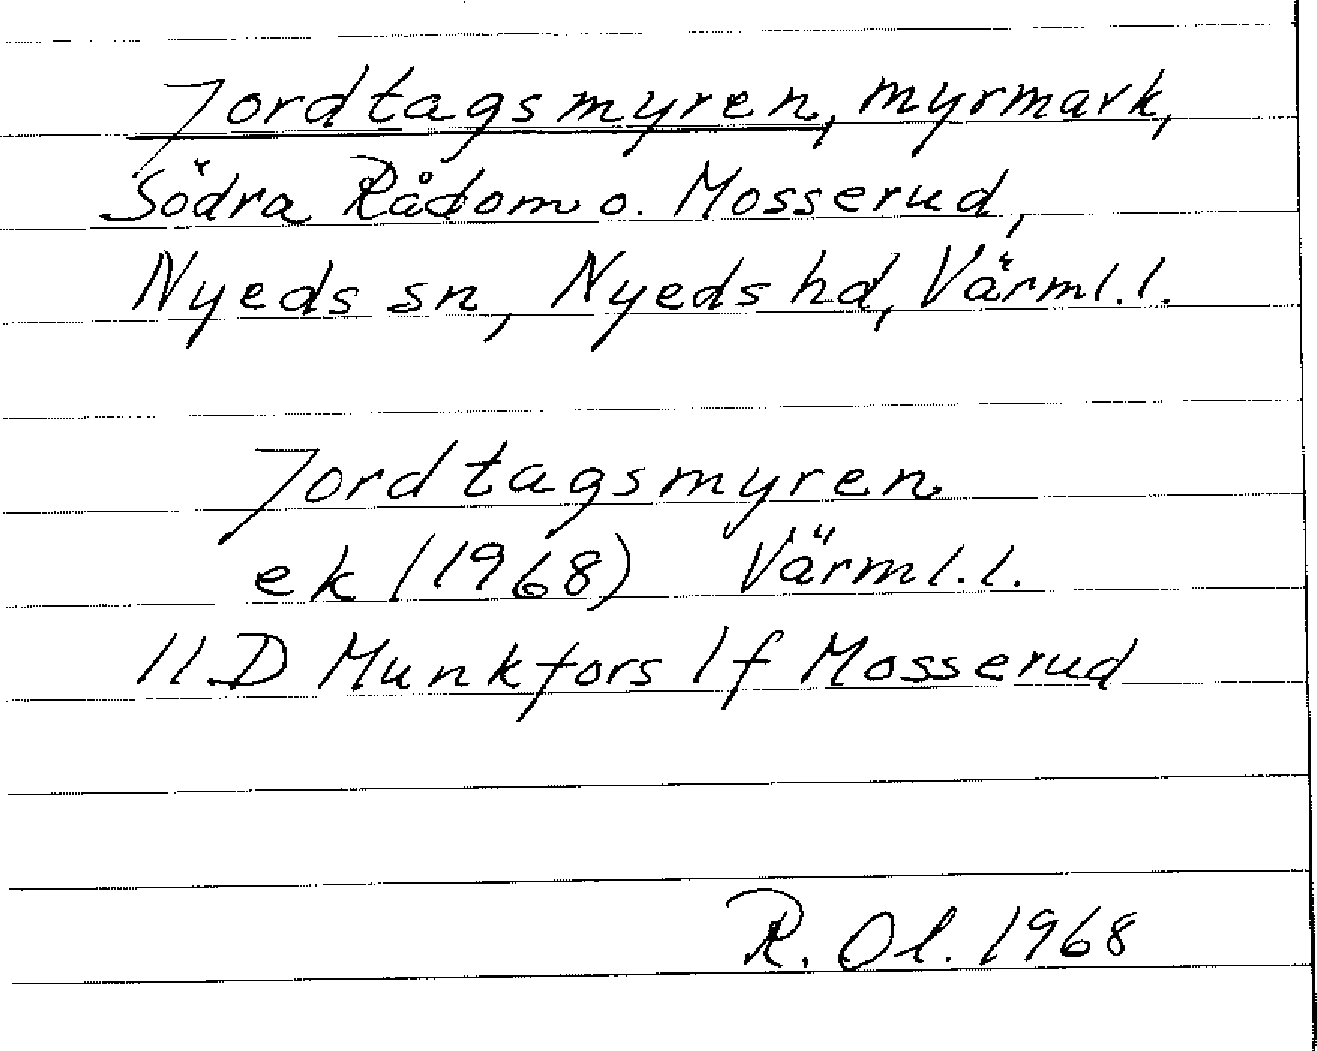 Jordtagsmyren, myrmark,
Södra Rådom o. Mosserud,
Nyeds sn, Nyeds hd, Värml. l.
Jordtagsmyren
ek (1968) Värml. l.
11D Munkfors 1f Mosserud
R. Ol. 1968